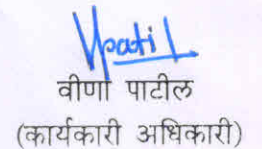 Vpatil
वीणा पाटील
(कार्यकारी अधिकारी)